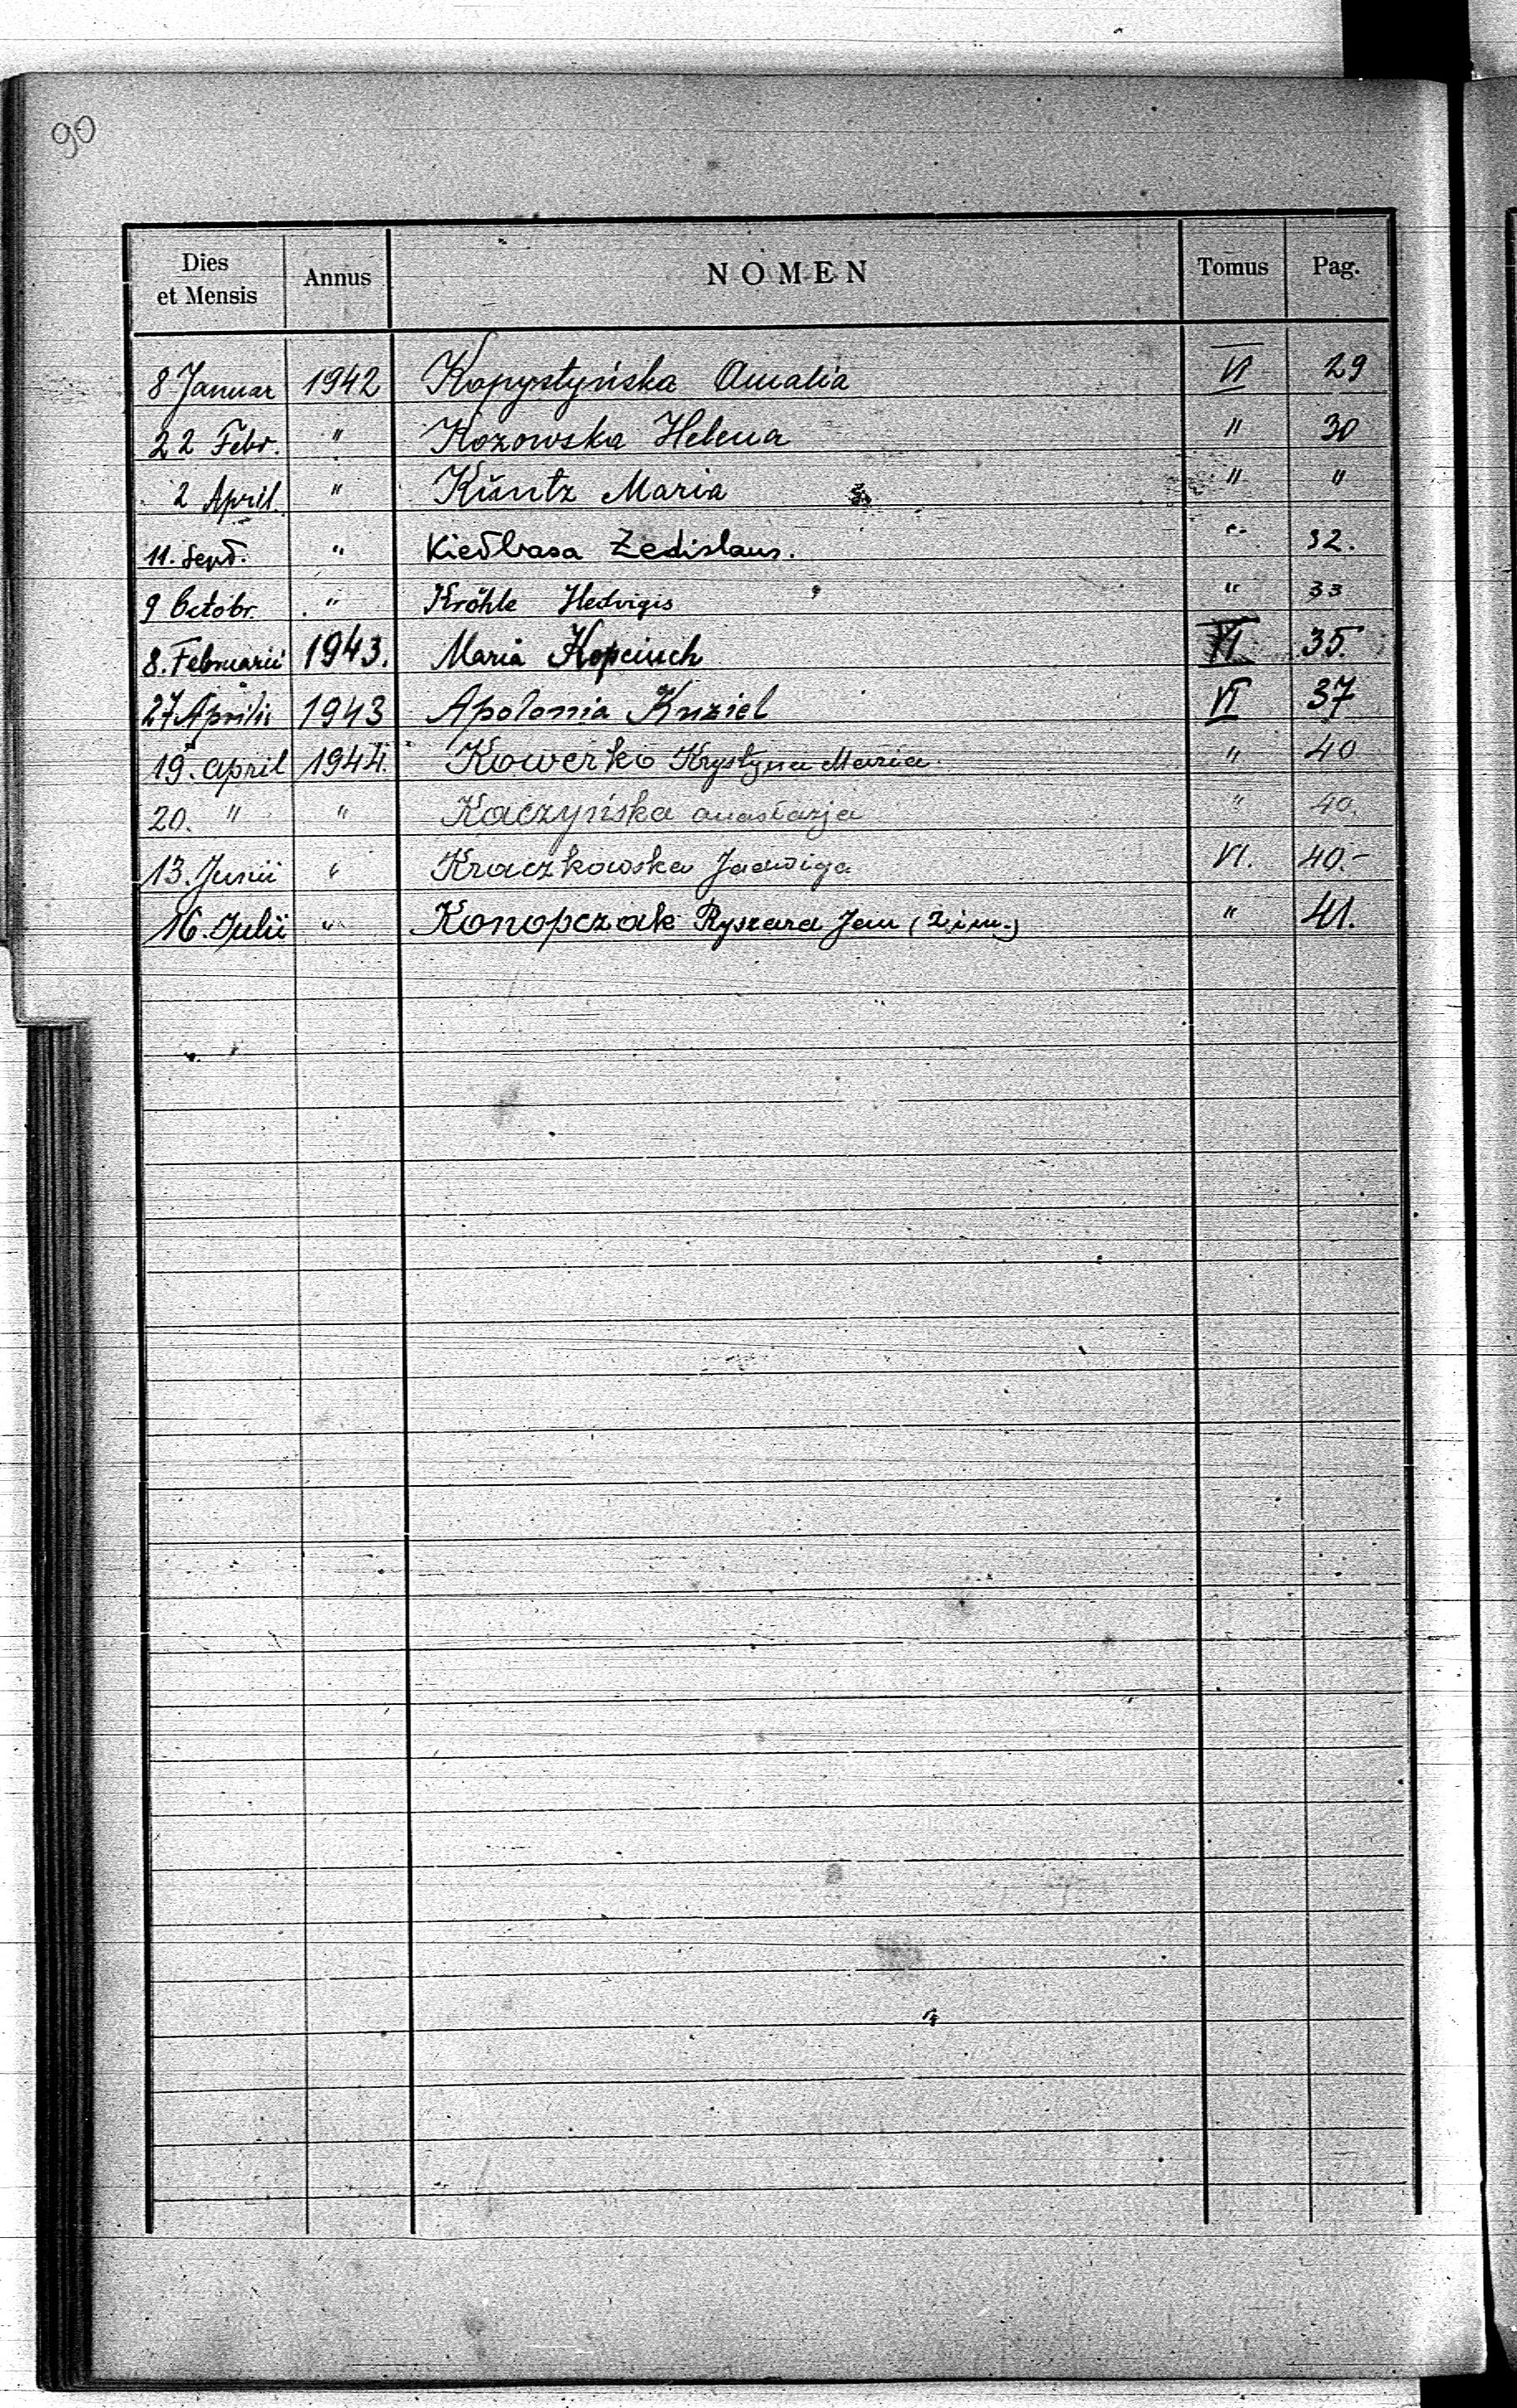 90
Dies et Mensis Annus NOMEN Tomus Pag.
8 Januar 1942 Kopystyńska Amalia VI 29
22 Febr. " Kozowska Helena " 30
2 April. " Kŭntz Maria " "
11. Sept. " Kiełbasa Zedislaus. " 32.
9 Octobr. " Kröhle Hedvigis " 33
8. Februarii 1943. Maria Kopciuch VI 35.
27 Aprilis 1943 Apolonia Kuziel VI 37
19. April 1944. Kowerko Krystyna Maria " 40
20. " " Kaczyńska Anastazja " 40.
13. Junii " Kraczkowska Jadwiga VI. 40.-
16. Julii " Konopczak Ryszard Jan (2 im.) " 41.